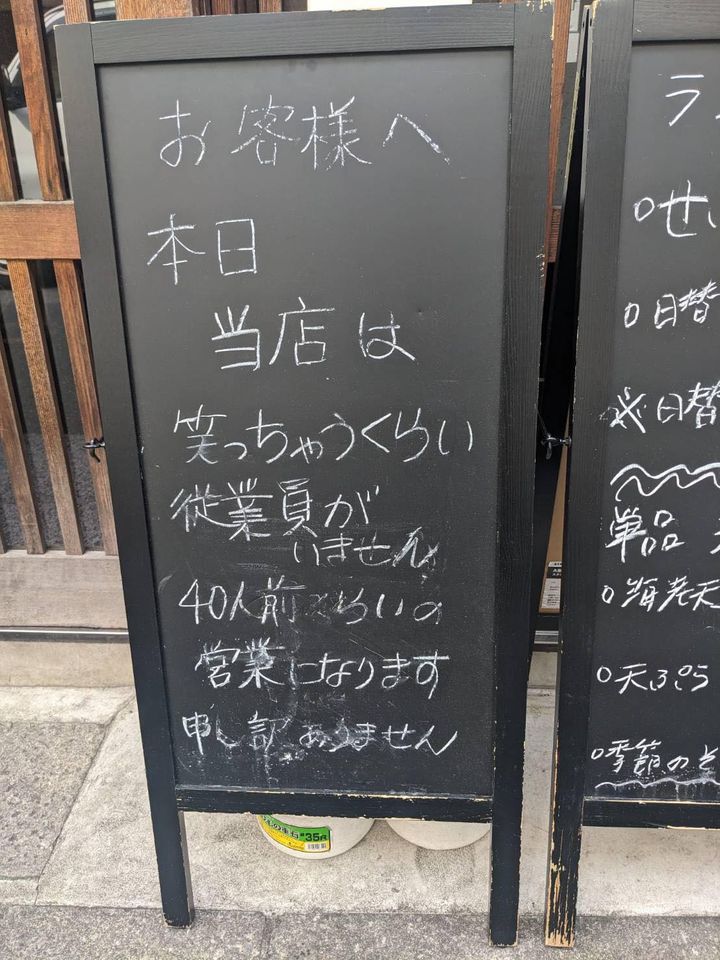 お客様へ
本日
当店は
笑っちゃうくらい
従業員が
いません
40人前くらいの
営業になります
申し訳ありません
ラ
○せい
○日替
日替
単品
○海老天
○天ぷら
○季節のそ